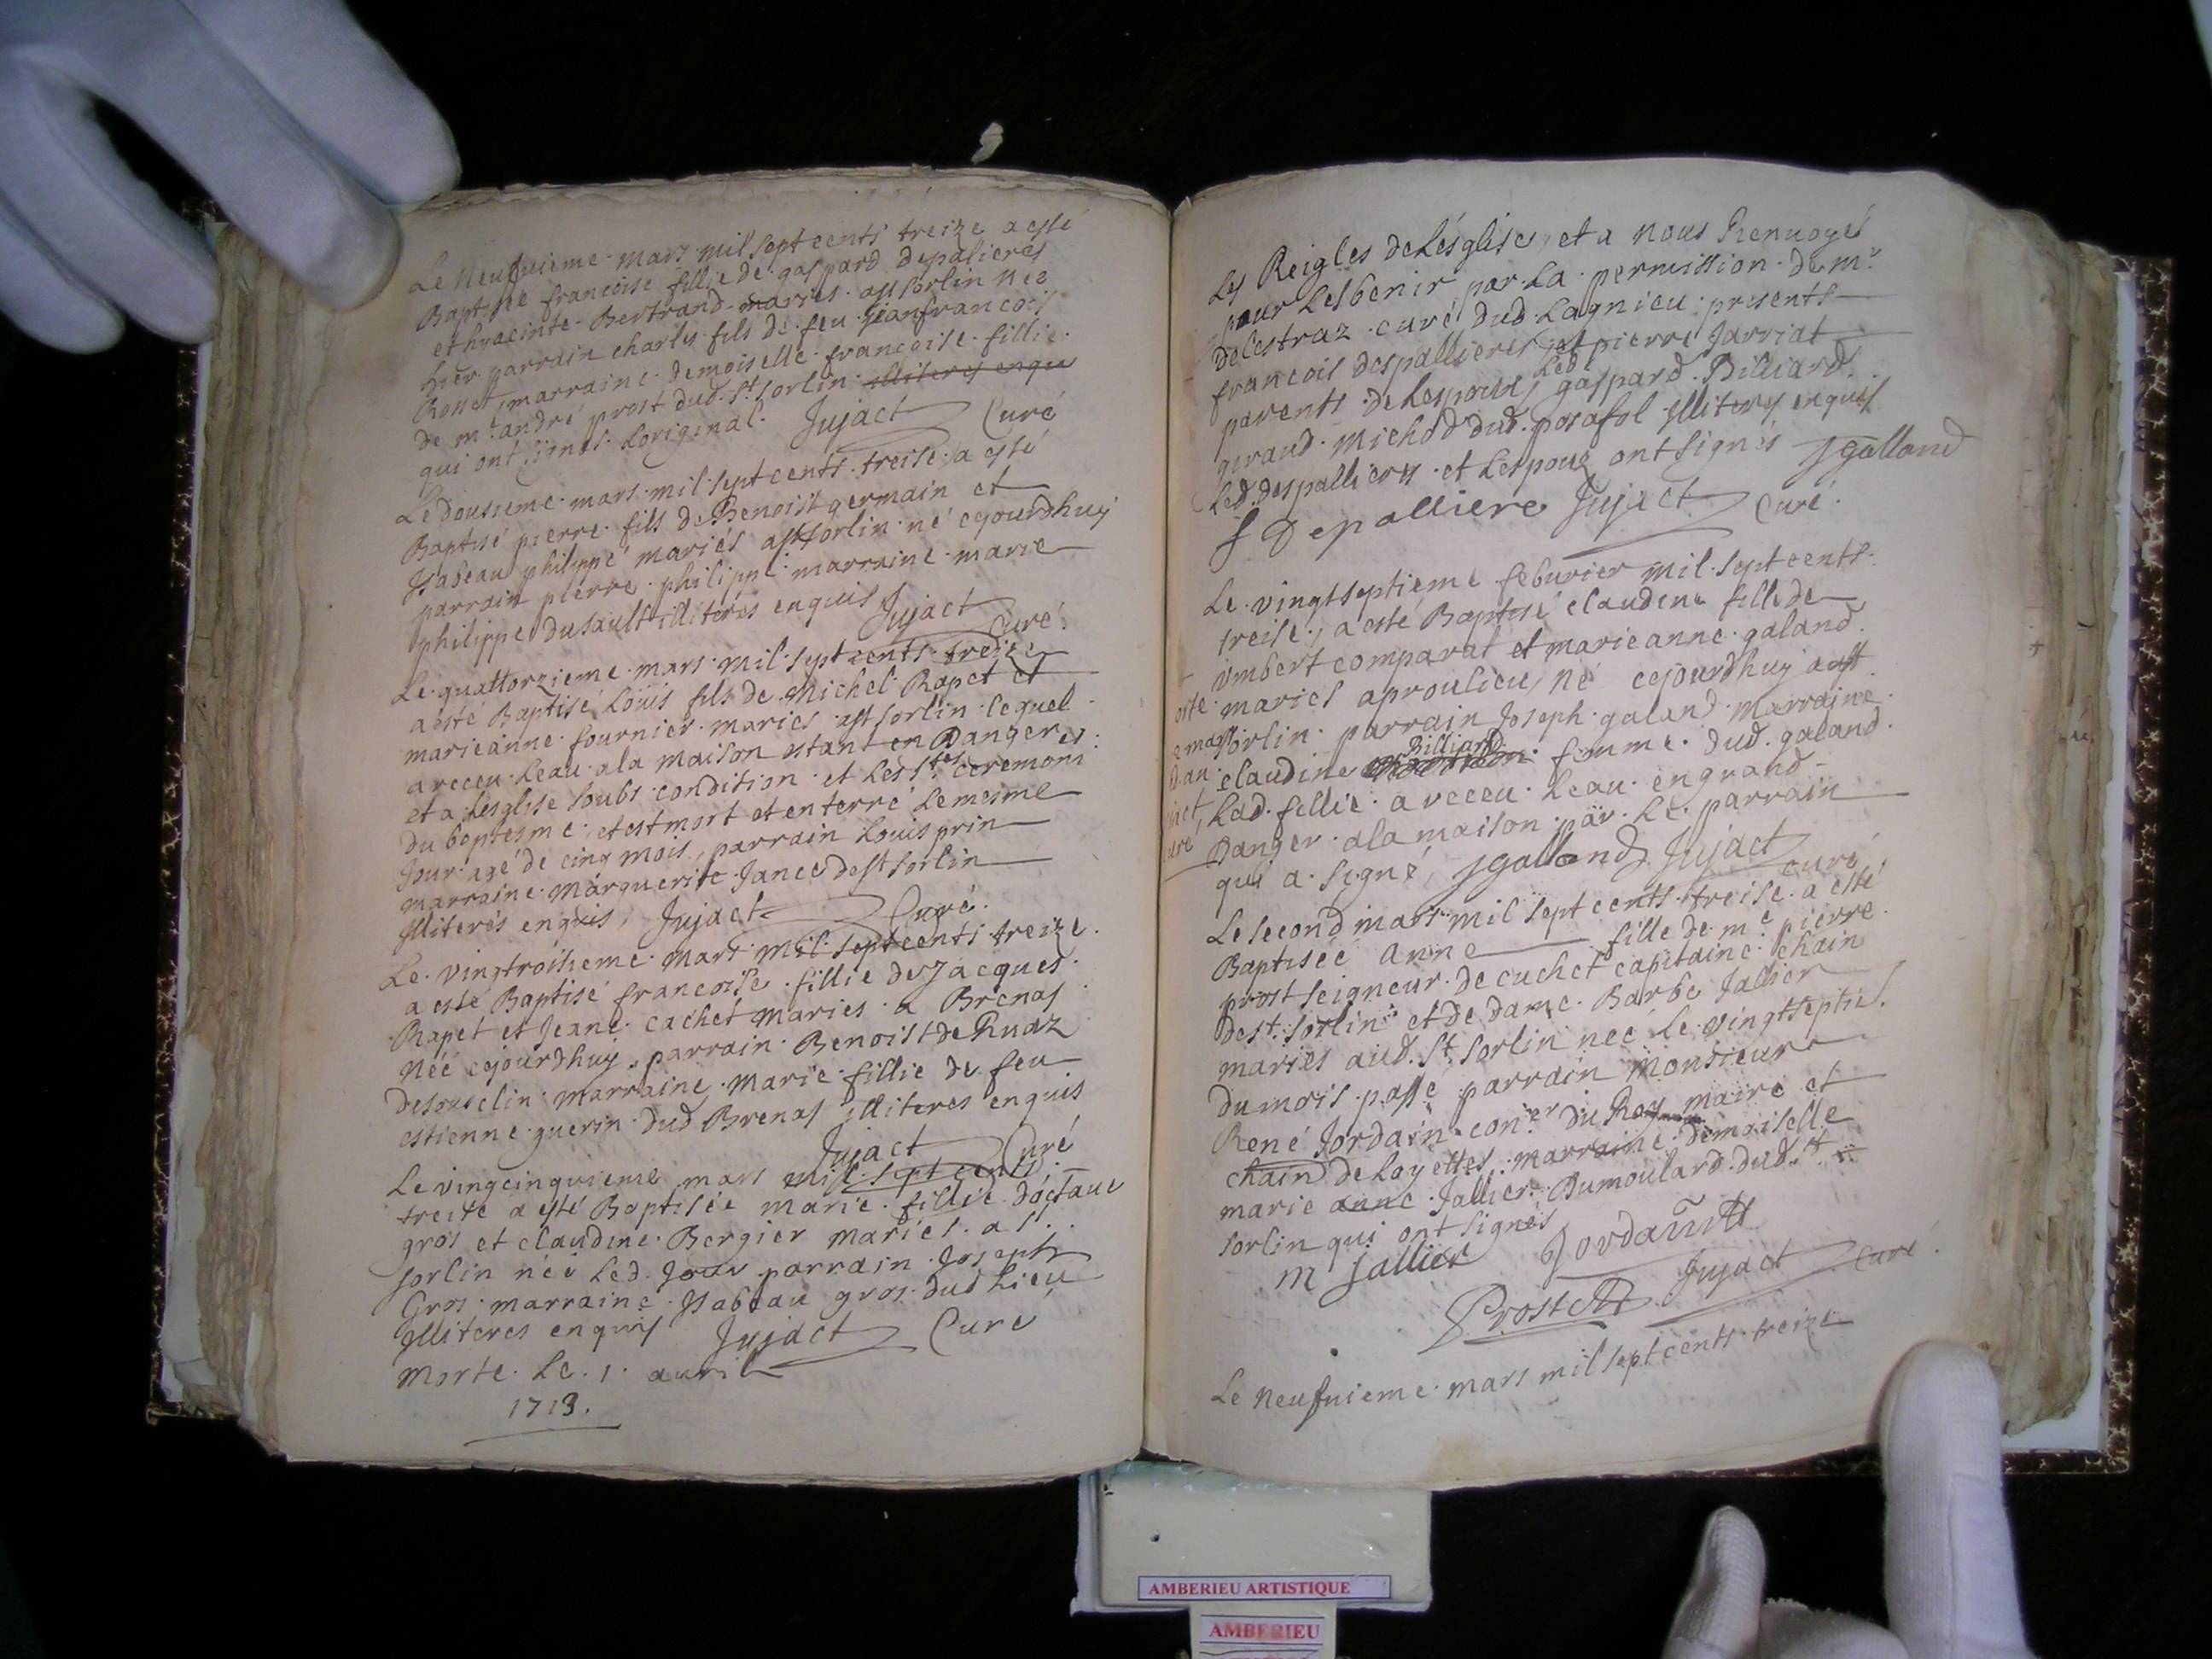 Le neufuieme mars mil sept cents treize a esté
Baptisée francoise fillie de gaspard depalieres
et hyacinte Bertrand mariés a st sorlin née
hier parrain charles fils de feu jeanfrancois
Rosset marraine demoiselle francoise fillie
de mr andré prost dud. st sorlin illiteres enqu
qui ont signés Loriginal. Jujact Curé
Le dousieme mars mil sept cents treise a esté
Baptisé pierre fils de Benoist germain et
Isabeau philippe mariés a st sorlin né cejourdhuy
parrain pierre philippe marraine marie
philippe dusault illiteres enquis Jujact
Curé.
Le quattorzieme mars mil sept cents treize
a esté Baptisé Louis fils de Michel Rapet et
marieanne fournier mariés a st sorlin lequel
a receu Leau a la maison estant en Danger
et a Lesglise soubs condition et Les stes ceremoni es
du baptesme, et est mort et enterré Le mesme
Jour agé de cinq mois, parrain Louis prin
marraine Marguerite Jance de st sorlin
Illiteres enquis, Jujact Curé.
Le vingtroisieme mars mil sept cents treize.
a esté Baptisé francoise fillie de Jacques
Rapet et Jeane cachet mariés a Brenas
née cejourdhuy parrain Benoist de Ruaz
de souclin marraine marie fillie de feu
estienne guerin dud Brenas illiteres enquis
Jujact Curé
Le vingcinquieme mars mil sept cents
treise a esté Baptisée marie fillie doctaue
gros et claudine Bergier mariés a st
sorlin née Led. Jour parrain Joseph
Gros marraine Isabeau gros dud Lieu
Illiteres enquis Jujact Curé
Morte Le 1 auril
1713.
Les Reigles de Lésglise, et a nous Renuoyés
pour Lesbenir par La permission de mr
delestraz curé dud. Lagnieu presents
francois despallieres et pierre Jarriat
parents de Lespoux Led. gaspard Billiard
geraud michod dud. posafol Illiteres enquis
Led. despallieres et Lespoux ont signés JGalland
f Depalliere Jujact Curé.
Le vingtseptieme feburier mil sept cents
treise, a esté Baptisé claudine fille de
imbert comparat et marieanne galand
mariés a proulieu, né cejourdhuy a st
sorlin parrain Joseph galand Marraine
claudine Billiard femme dud. galand.
Lad. fillie a receu Leau en grand
Danger a la maison par Le parrain
qui a signé, JGalland Jujact
Curé
Le second mars mil sept cents treise a esté
Baptisée Anne fille de me pierre
prost seigneur de cuchet capitaine chain
de st sorlin et de dame Barbe Jallier
mariés aud. st sorlin née Le vingtseptie.
du mois passé parrain Monsieur
René Jordain coner du Roy maire et
chain de Loyettes, marraine demoiselle
marie anne Jallier Dumoulard dud. st
sorlin qui ont signés
m Jallier Jordain
Prost Jujact Curé.
Le neufuieme mars mil sept cents treize
AMBERIEU ARTISTIQUE
AMBERIEU